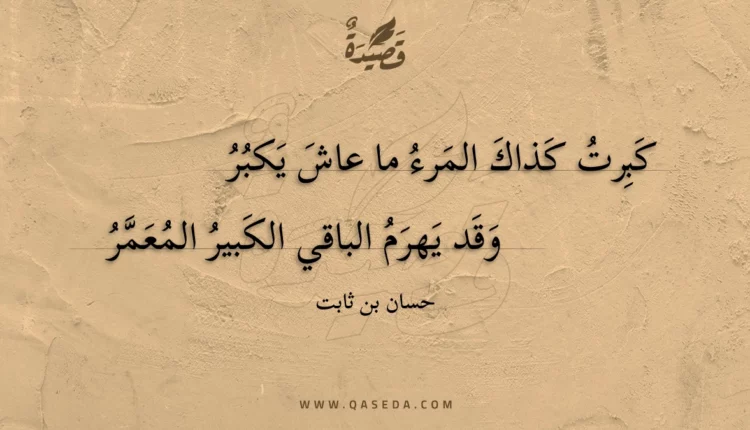 قَصِيدَةٌ
كَبِرتُ كَذاكَ المَرءُ ما عاشَ يَكبُرُ
وَقَد يَهرَمُ الباقي الكَبيرُ المُعَمَّرُ
حسان بن ثابت
WWW.QASEDA.COM